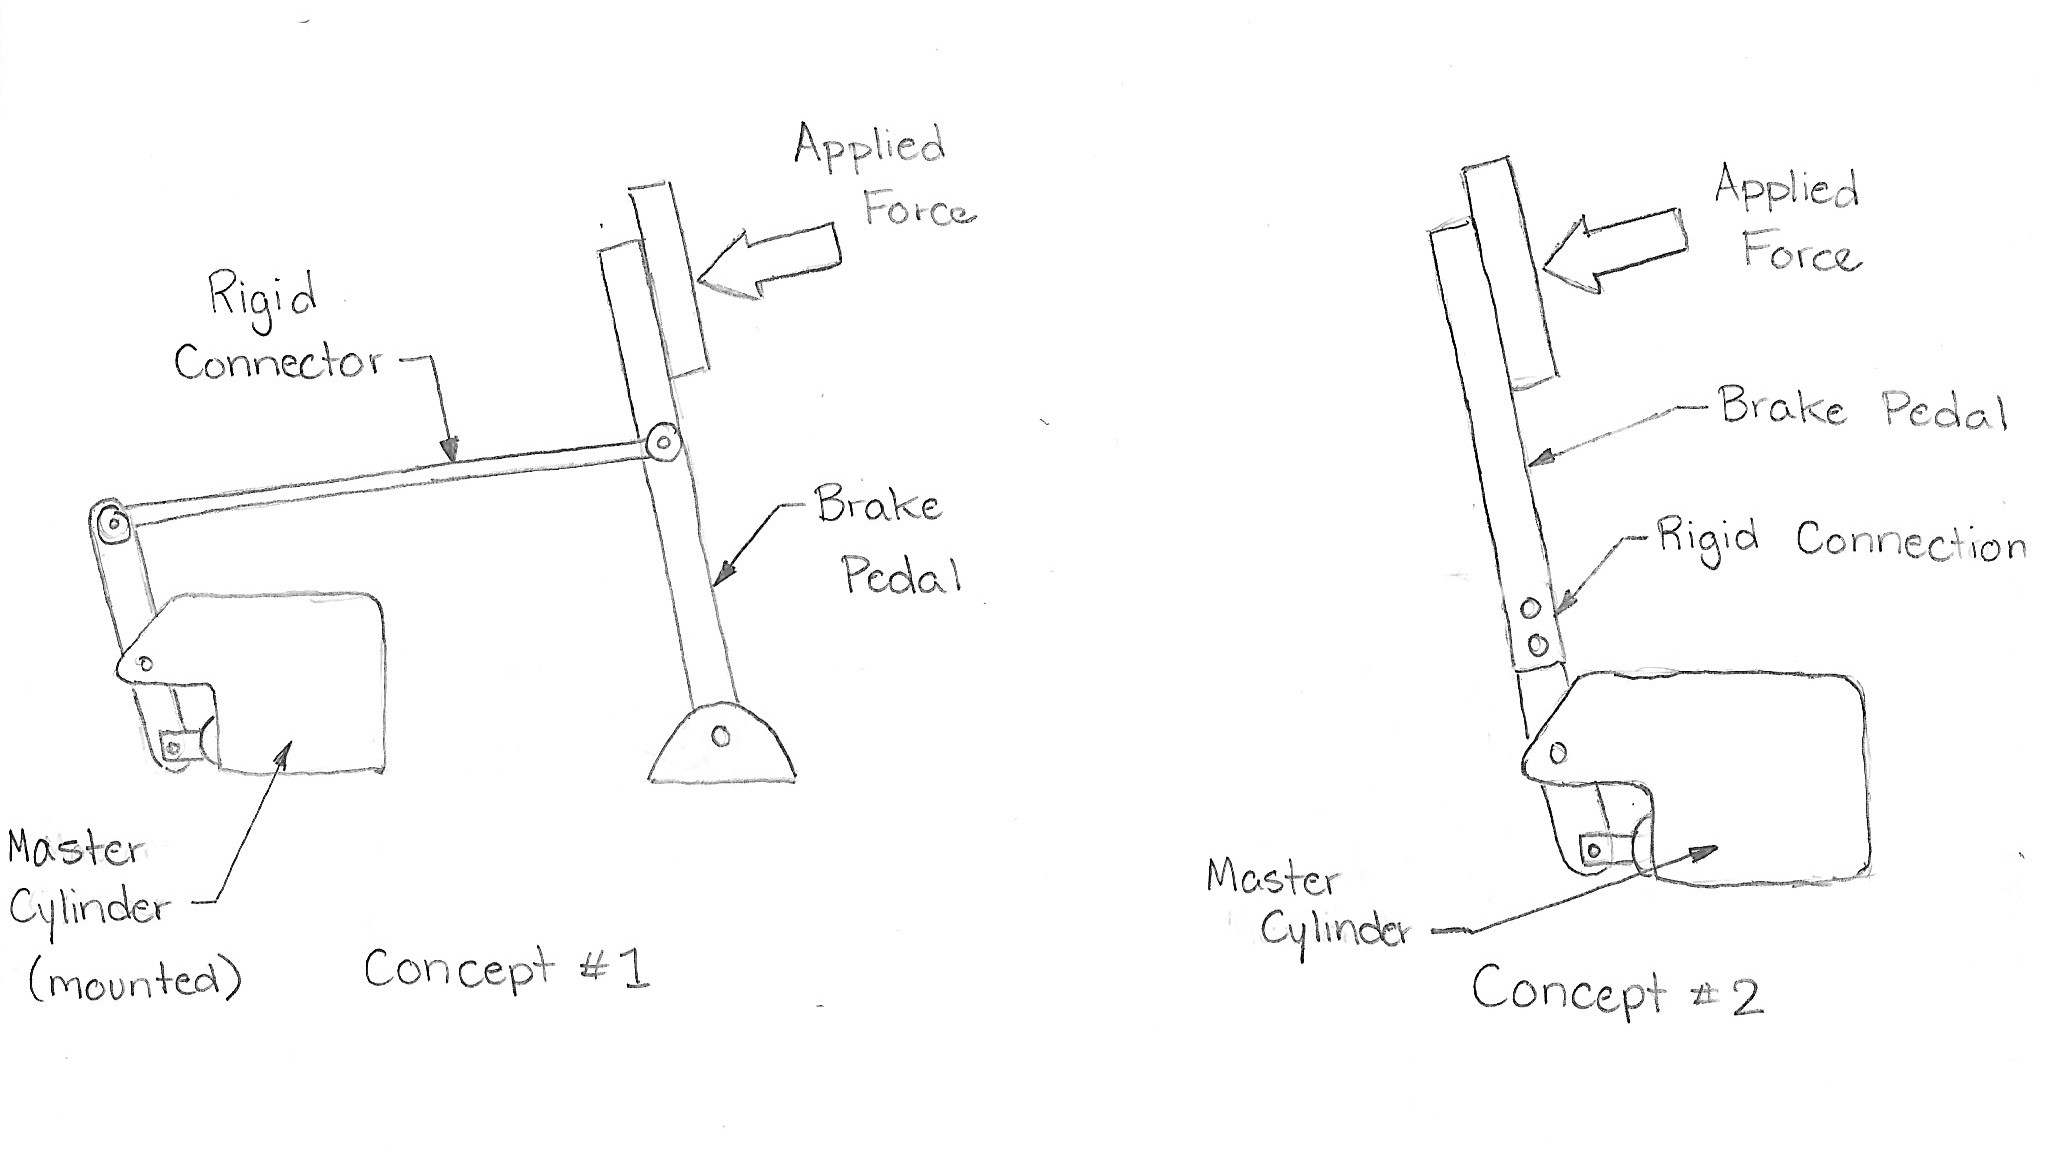 Applied
Force
Rigid
Connector
Brake
Pedal
Master
Cylinder
(mounted)
Concept #1
Applied
Force
Brake Pedal
Rigid Connection
Master
Cylinder
Concept #2